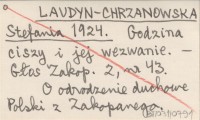 a
LAUDYN-CHRZANOWSKA
Stefania 1924. Godzina
ciszy i jej wezwanie. –
Głos Zakop. 2, nr 43.
O odrodzenie duchowe
Polski z Zakopanego.